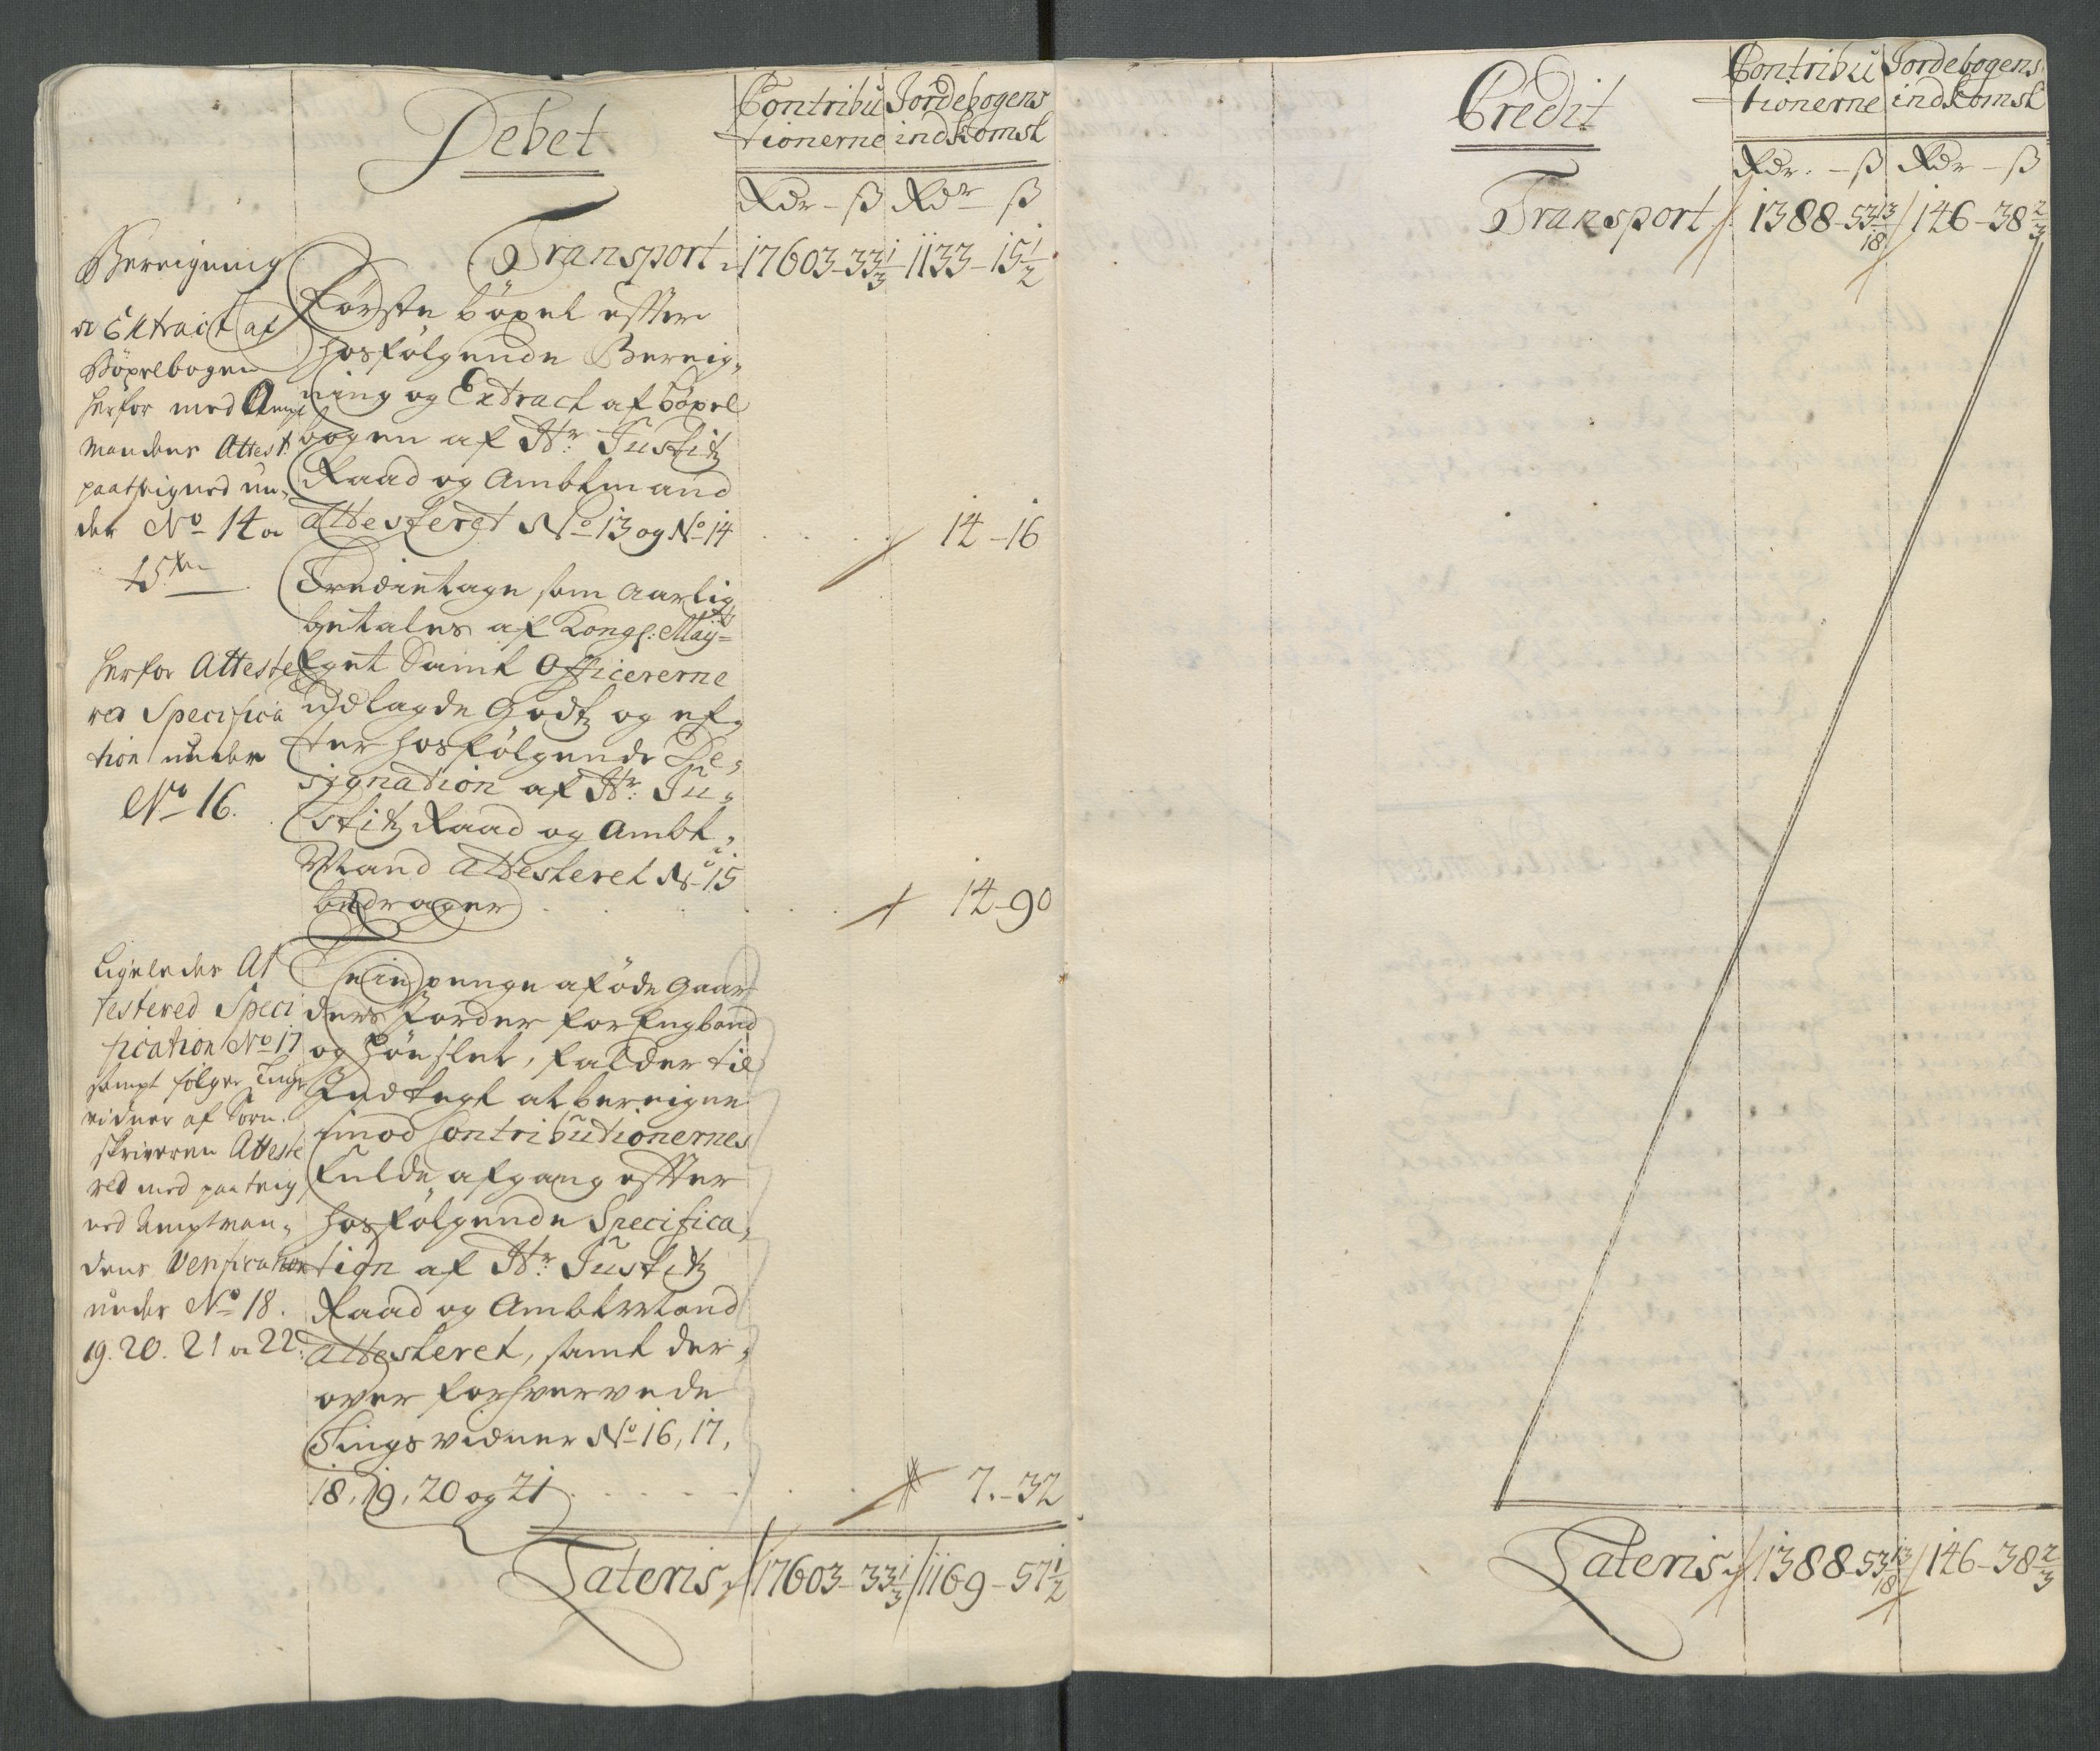 Debet
Contribu Jordebogens
tionerne indkomst
Rdr – ß Rdr – ß
Transport 17603-33 1/3 1133-15 1/2
Bereigning
og Extract af
Böxelbogen
herfor med Ampt
mandens Attest
paateigned un-
der No 14 og
15ten
Förste böxel efter
hosfölgende Bereig-
ning og Extract af böxel
bogen af Hr: Justitz
Raad og Ambtmand
attesteret No 13 og No 14 14-16
Tredietage som aarlig
betales af Kongl: Mayts
Eget samt Officererne
udlagde Godtz og ef-
ter hosfölgende De-
signation af Hr: Ju-
stitz Raad og Ambt-
Mand attesteret No 15
bedrager 14-90
herfor Atteste
red Specifica
tion under
No 16.
Ligeledes At
testered Speci
fication No 17
sampt fölger Tings
vidner af Sorn-
skriveren Atteste
red med paateig
ned Amptman-
dens Verification
under No 18.
19. 20. 21 og 22.
penge af öde Gaar
ders Jorder for Engbond
og Hönslet, falder til
Indtegt at bereigne
imod Contributionernes
fulde afgang efter
hosfölgende Specifica-
tion af Hr: Justitz
Raad og AmbtMand
attesteret, samt der-
over forhvervede
Tingsvidner No 16, 17,
18, 19, 20 og 21 7.-32
Lateris 17603-33 1/3 1169-57 1/2
Credit
Contribu Jordebogens
tionerne indkomst
Rdr. – ß Rdr – ß
Transport 1388-53 13/18 146-38 2/3
Lateris 1388-53 13/18 146-38 2/3